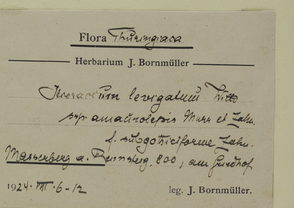 Flora Thüringiaca
Herbarium J. Bornmüller
Hieracium levigatum Willd.
ssp amaurolepis Murr et Zahn
f. subgothiciforme Zahn.
Masserberg a. Rennsteig. 800, am
1924. VII. 6-12
leg. J. Bornmüller.